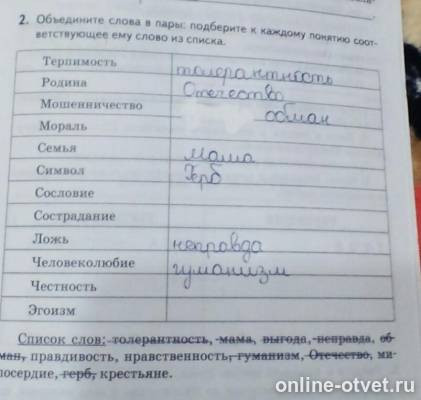 2. Объедините слова в пары: подберите к каждому понятию соот-
ветствующее ему слово из списка.
Терпимость толерантность
Родина Отечество
Мошенничество обман
Мораль
Семья мама
Символ Герб
Сословие
Сострадание
Ложь неправда
Человеколюбие гуманизм
Честность
Эгоизм
Список слов: толерантность, мама, выгода, неправда, об-
ман, правдивость, нравственность, гуманизм, Отечество, ми-
лосердие, герб, крестьяне.
online-otvet.ru